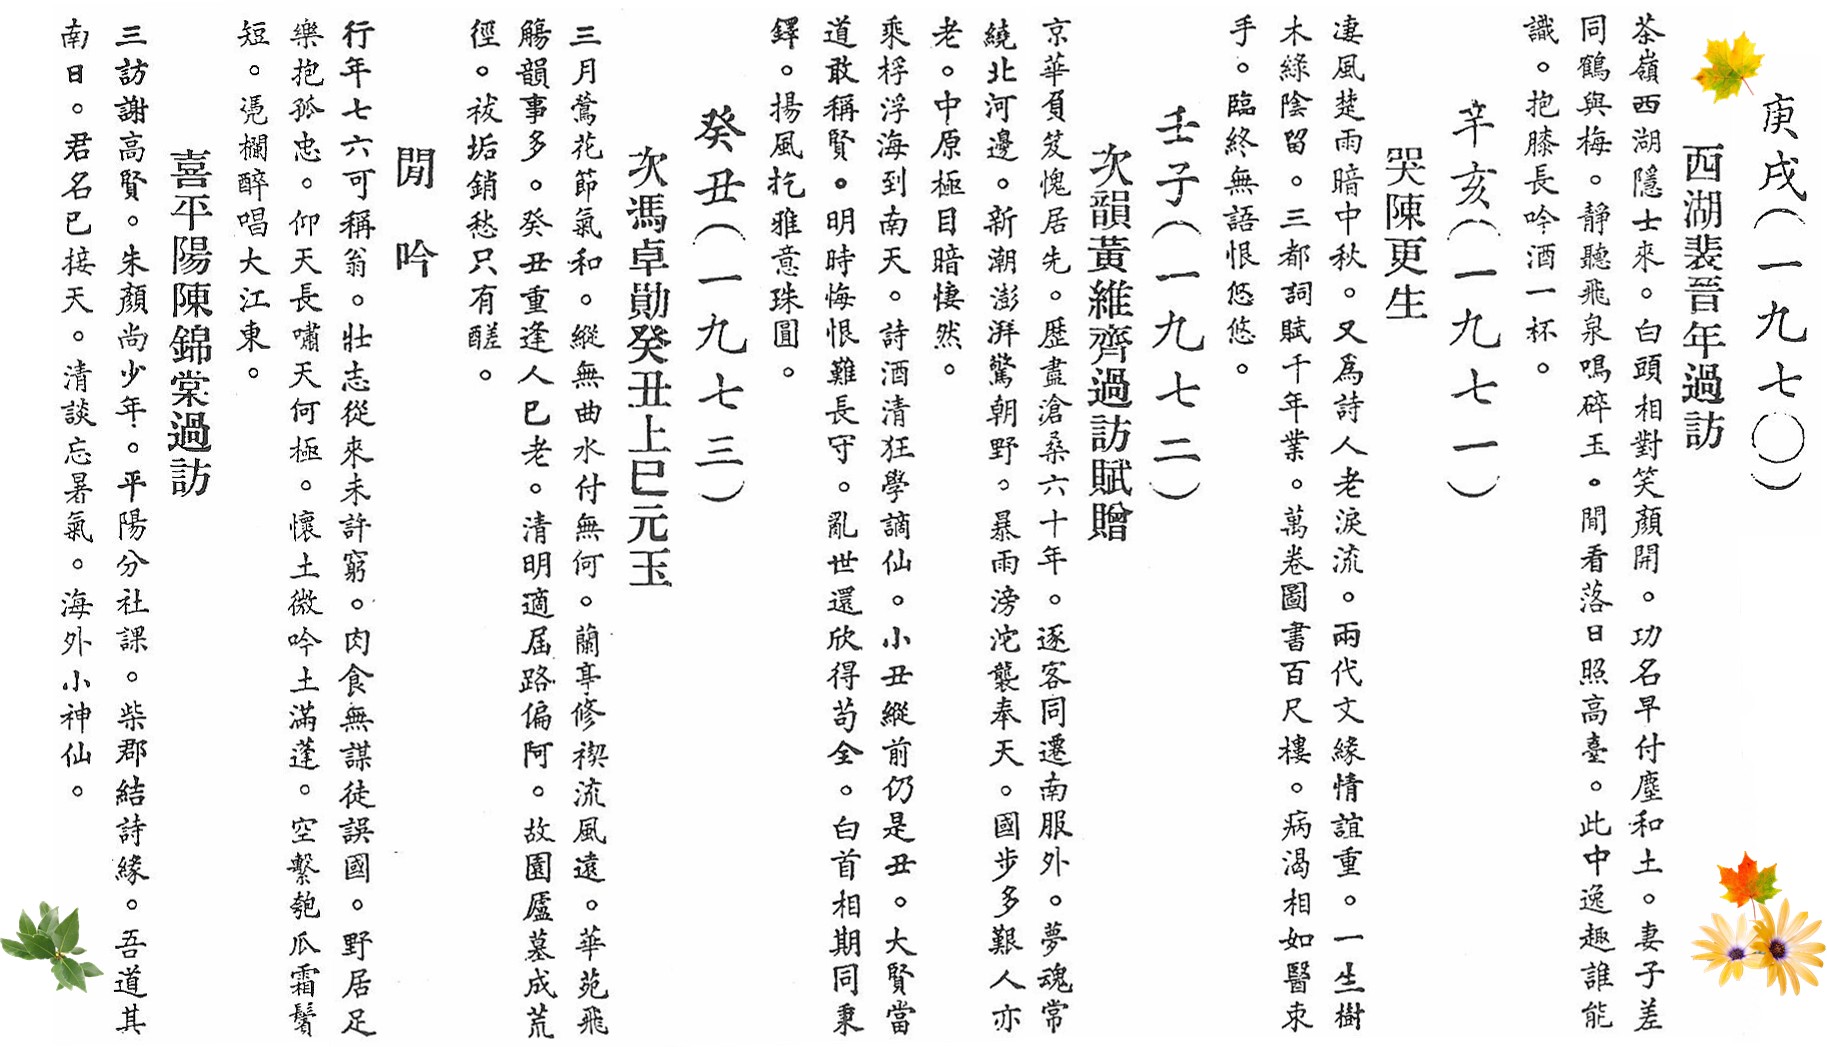 庚戌(一九七〇)
西湖裴晉年過訪
茶嶺西湖隱士來。白頭相對笑顏開。功名早付塵和土。妻子差
同鶴與梅。靜聽飛泉鳴碎玉。閒看落日照高臺。此中逸趣誰能
識。抱膝長吟酒一杯。
辛亥(一九七一)
哭陳更生
淒風楚雨暗中秋。又爲詩人老淚流。兩代文緣情誼重。一生樹
木綠陰留。三都詞賦千年業。萬卷圖書百尺樓。病渴相如醫束
手。臨終無語恨悠悠。
壬子(一九七二)
次韻黃維齊過訪賦贈
京華負笈愧居先。歷盡滄桑六十年。逐客同遷南服外。夢魂常
繞北河邊。新潮澎湃驚朝野。暴雨滂沱襲奉天。國步多艱人亦
老。中原極目暗悽然。
乘桴浮海到南天。詩酒清狂學謫仙。小丑縱前仍是丑。大賢當
道敢稱賢。明時悔恨難長守。亂世還欣得苟全。白首相期同秉
鐸。揚風扢雅意珠圓。
癸丑(一九七三)
次馮卓勛癸丑上巳元玉
三月鶯花節氣和。縱無曲水付無何。蘭亭修禊流風遠。華苑飛
觴韻事多。癸丑重逢人已老。清明適屆路偏阿。故園廬墓成荒
徑。袚垢銷愁只有醝。
閒吟
行年七六可稱翁。壯志從來未許窮。肉食無謀徒誤國。野居足
樂抱孤忠。仰天長嘯天何極。懷土微吟土滿蓬。空繫匏瓜霜鬢
短。凭欄醉唱大江東。
喜平陽陳錦棠過訪
三訪謝高賢。朱顏尚少年。平陽分社課。柴郡結詩緣。吾道其
南日。君名已接天。清談忘暑氣。海外小神仙。